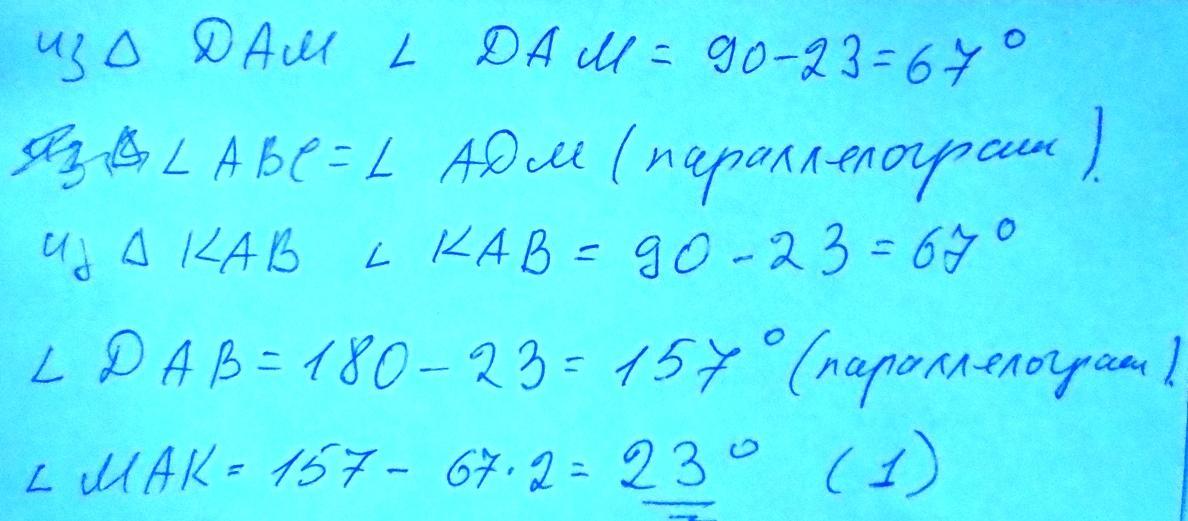 из Δ DAM ∠ DAM = 90-23=67°
∠ ABC = ∠ ADM (параллелограм).
из Δ KAB ∠ KAB = 90-23=67°
∠ DAB = 180-23=157° (параллелограм).
∠ MAK = 157- 67·2= 23° (1)